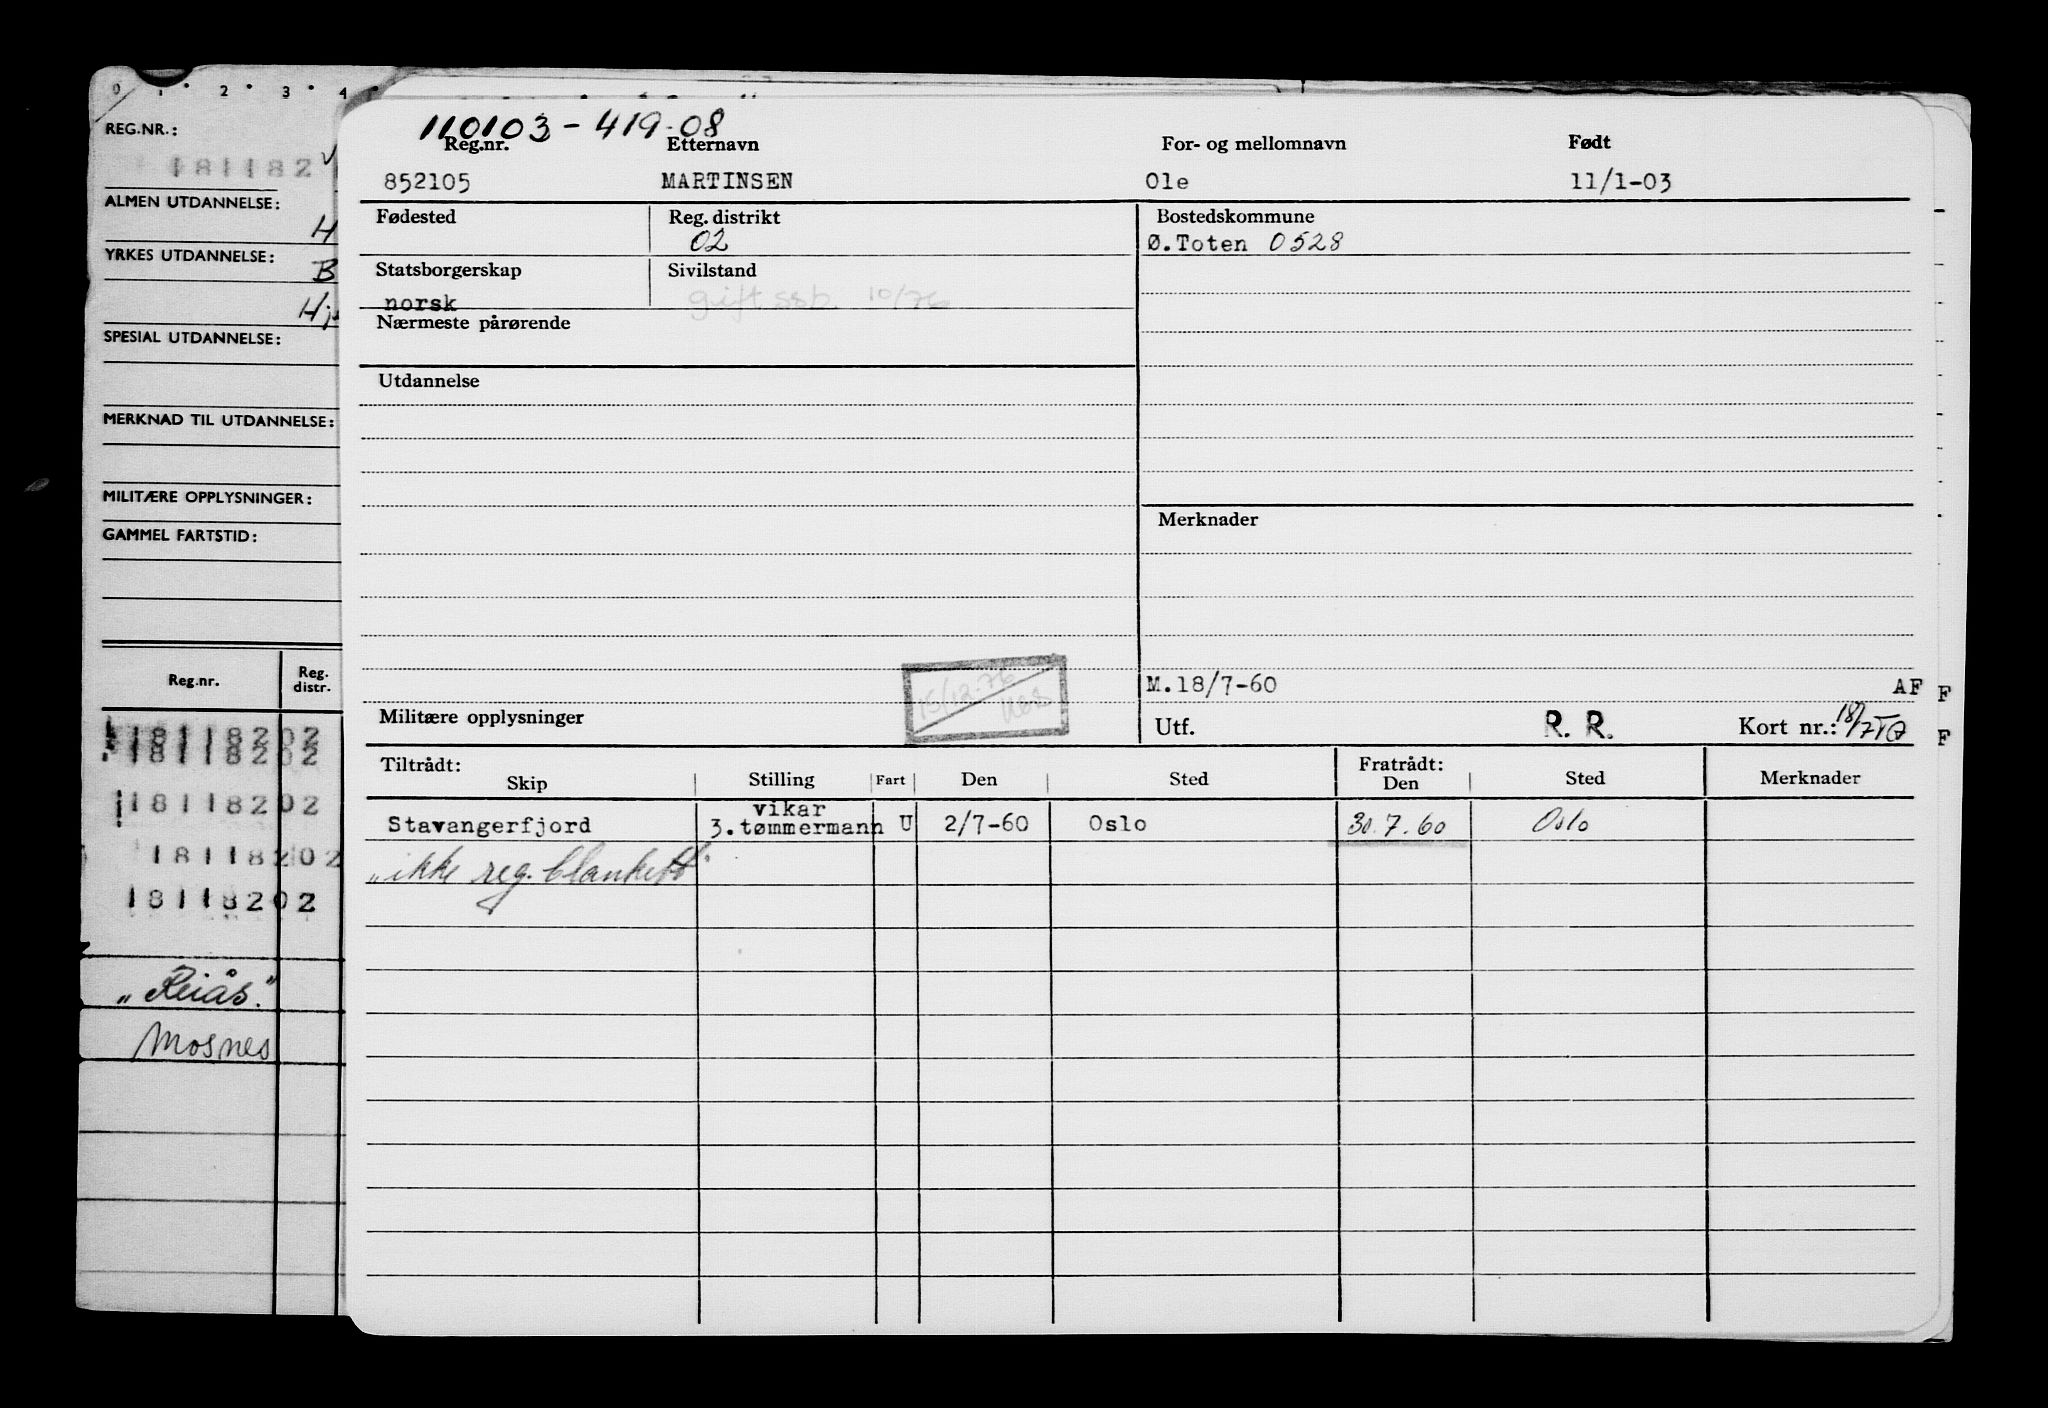 0 1 2 3 4
REG.NR.:
181182
ALMEN UTDANNELSE:
H
YRKES UTDANNELSE:
B
Hj
SPESIAL UTDANNELSE:
MERKNAD TIL UTDANNELSE:
MILITÆRE OPPLYSNINGER:
GAMMEL FARTSTID:
Reg.nr. Reg. distr.
181182 02
181182 02
181182 02
181182 02
181182 02
„Reiås."
Mosnes
110103-419-08
Reg.nr. Etternavn For- og mellomnavn Født
852105 MARTINSEN Ole 11/1-03
Fødested Reg. distrikt Bostedskommune
02 Ø.Toten 0528
Statsborgerskap Sivilstand
norsk gift ssb. 10/76
Nærmeste pårørende
Utdannelse
Merknader
15/12-76
M.18/7-60 AF F
Militære opplysninger Utf. R. R. Kort nr.: 18/7 F
Tiltrådt: Fratrådt:
Skip Stilling Fart Den Sted Den Sted Merknader
vikar
Stavangerfjord 3.tømmermann U 2/7-60 Oslo 30.7.60 Oslo
„ikke reg. blankett"